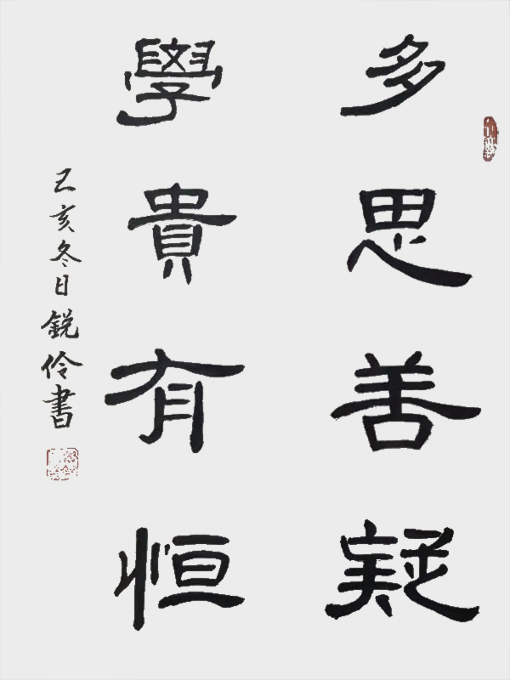 多思善疑
學貴有恒
己亥冬日銳伶書